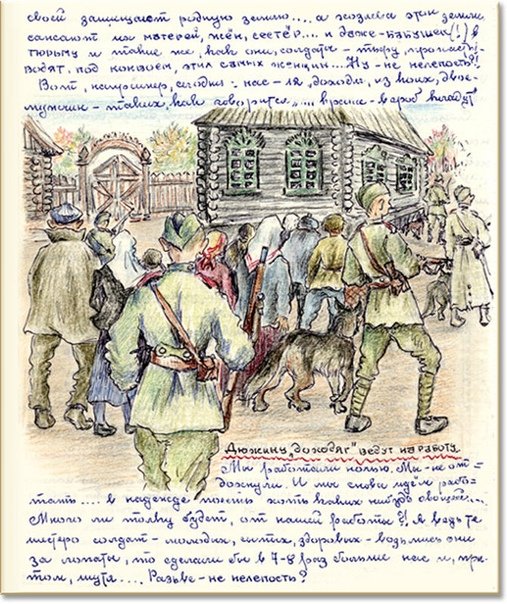 своей защищают родную землю.... а хозяева этой земли
сажают их матерей, жён, сестёр.... и даже - бабушек(!) в
тюрьму и такие же, как они, солдаты -
водят, под конвоем, этих самых женщин.... Ну - не нелепость?!
Вот, например, сегодня: нас - 12, доходяг, из коих, двое -
мужчин - таких, как говорится,.... краше - в гроб кладут
Дюжину „доходяг" ведут на работу.
Мы работали ночью. Мы - не от=
дохнули. И мы снова идём рабо=
тать.... в надежде поесть хоть каких нибудь овощей....
Много ли толку будет, от нашей работы?! А ведь те
шестеро солдат - молодых, сытых, здоровых - возьмись они
за лопаты, то сделали бы в 7-8 раз больше нас и, при=
том, шутя.... Разьве - не нелепость?